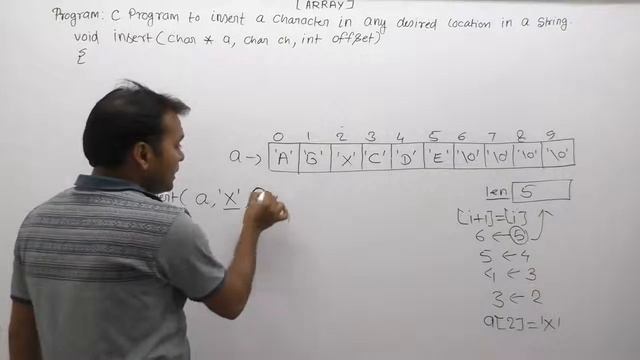 [ARRAY]
Program: C Program to insert a character in any desired location in a string.
void insert(char * a, char ch, int offset)
{
0 1 2 3 4 5 6 7 8 9
a → 'A' 'B' 'X' 'C' 'D' 'E' '\0' '\0' '\0' '\0'
len 5
( a, 'X',
[i+1]=[i]
6 ← 5
5 ← 4
4 ← 3
3 ← 2
a[2]='X'